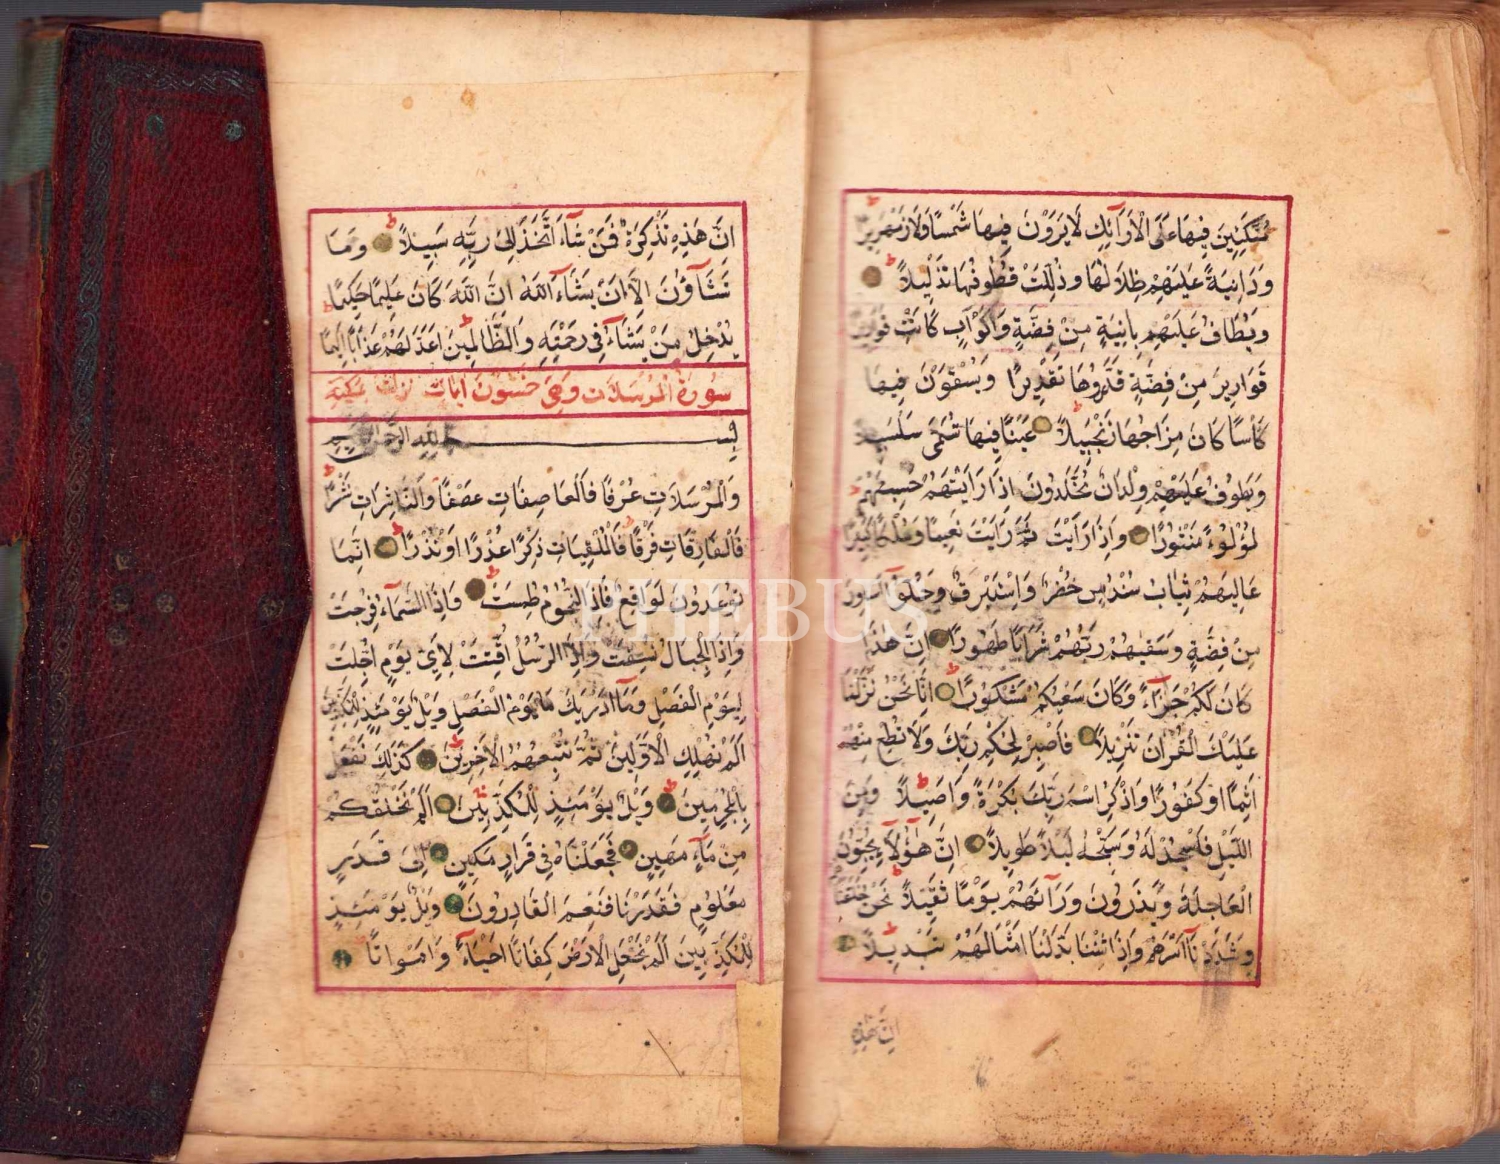 مُتَّكِئِينَ فِيهَا عَلَى الْاَرَآئِكِ لَا يَرَوْنَ فِيهَا شَمْسًا وَلَا زَمْهَرِيرًا
وَدَانِيَةً عَلَيْهِمْ ظِلَالُهَا وَذُلِّلَتْ قُطُوفُهَا تَذْلِيلًا
وَيُطَافُ عَلَيْهِمْ بِاٰنِيَةٍ مِنْ فِضَّةٍ وَاَكْوَابٍ كَانَتْ قَوَارِيرَ
قَوَارِيرَ مِنْ فِضَّةٍ قَدَّرُوهَا تَقْدِيرًا وَيُسْقَوْنَ فِيهَا
كَأْسًا كَانَ مِزَاجُهَا زَنْجَبِيلًا عَيْنًا فِيهَا تُسَمّٰى سَلْسَبِيلًا
وَيَطُوفُ عَلَيْهِمْ وِلْدَانٌ مُخَلَّدُونَ اِذَا رَاَيْتَهُمْ حَسِبْتَهُمْ
لُؤْلُؤًا مَنْثُورًا وَاِذَا رَاَيْتَ ثَمَّ رَاَيْتَ نَعِيمًا وَمُلْكًا كَبِيرًا
عَالِيَهُمْ ثِيَابُ سُنْدُسٍ خُضْرٌ وَاِسْتَبْرَقٌ وَحُلُّوا اَسَاوِرَ
مِنْ فِضَّةٍ وَسَقٰيهُمْ رَبُّهُمْ شَرَابًا طَهُورًا اِنَّ هٰذَا
كَانَ لَكُمْ جَزَآءً وَكَانَ سَعْيُكُمْ مَشْكُورًا اِنَّا نَحْنُ نَزَّلْنَا
عَلَيْكَ الْقُرْاٰنَ تَنْزِيلًا فَاصْبِرْ لِحُكْمِ رَبِّكَ وَلَا تُطِعْ مِنْهُمْ
اٰثِمًا اَوْ كَفُورًا وَاذْكُرِ اسْمَ رَبِّكَ بُكْرَةً وَاَصِيلًا وَمِنَ
الَّيْلِ فَاسْجُدْ لَهُ وَسَبِّحْهُ لَيْلًا طَوِيلًا اِنَّ هٰؤُلَآءِ يُحِبُّونَ
الْعَاجِلَةَ وَيَذَرُونَ وَرَآئَهُمْ يَوْمًا ثَقِيلًا نَحْنُ خَلَقْنَا
وَشَدَدْنَآ اَسْرَهُمْ وَاِذَا شِئْنَا بَدَّلْنَا اَمْثَالَهُمْ تَبْدِيلًا
اِنَّ هٰذِهِ
اِنَّ هٰذِهِ تَذْكِرَةٌ فَمَنْ شَآءَ اتَّخَذَ اِلٰى رَبِّهِ سَبِيلًا وَمَا
تَشَآؤُنَ اِلَّا اَنْ يَشَآءَ اللّٰهُ اِنَّ اللّٰهَ كَانَ عَلِيمًا حَكِيمًا
يُدْخِلُ مَنْ يَشَآءُ فِي رَحْمَتِهِ وَالظَّالِمِينَ اَعَدَّ لَهُمْ عَذَابًا اَلِيمًا
سُورَةُ الْمُرْسَلَاتِ وَهِيَ خَمْسُونَ اٰيَات نزلت بمكية
بِسْمِ اللّٰهِ الرَّحْمٰنِ الرَّحِيمِ
وَالْمُرْسَلَاتِ عُرْفًا فَالْعَاصِفَاتِ عَصْفًا وَالنَّاشِرَاتِ نَشْرًا
فَالْفَارِقَاتِ فَرْقًا فَالْمُلْقِيَاتِ ذِكْرًا عُذْرًا اَوْ نُذْرًا اِنَّمَا
تُوعَدُونَ لَوَاقِعٌ فَاِذَا النُّجُومُ طُمِسَتْ وَاِذَا السَّمَآءُ فُرِجَتْ
وَاِذَا الْجِبَالُ نُسِفَتْ وَاِذَا الرُّسُلُ اُقِّتَتْ لِاَيِّ يَوْمٍ اُجِّلَتْ
لِيَوْمِ الْفَصْلِ وَمَآ اَدْرٰيكَ مَا يَوْمُ الْفَصْلِ وَيْلٌ يَوْمَئِذٍ لِلْمُكَذِّبِينَ
اَلَمْ نُهْلِكِ الْاَوَّلِينَ ثُمَّ نُتْبِعُهُمُ الْاٰخِرِينَ كَذٰلِكَ نَفْعَلُ
بِالْمُجْرِمِينَ وَيْلٌ يَوْمَئِذٍ لِلْمُكَذِّبِينَ اَلَمْ نَخْلُقْكُمْ
مِنْ مَآءٍ مَهِينٍ فَجَعَلْنَاهُ فِي قَرَارٍ مَكِينٍ اِلٰى قَدَرٍ
مَعْلُومٍ فَقَدَرْنَا فَنِعْمَ الْقَادِرُونَ وَيْلٌ يَوْمَئِذٍ
لِلْمُكَذِّبِينَ اَلَمْ نَجْعَلِ الْاَرْضَ كِفَاتًا اَحْيَآءً وَاَمْوَاتًا
PHEBUS